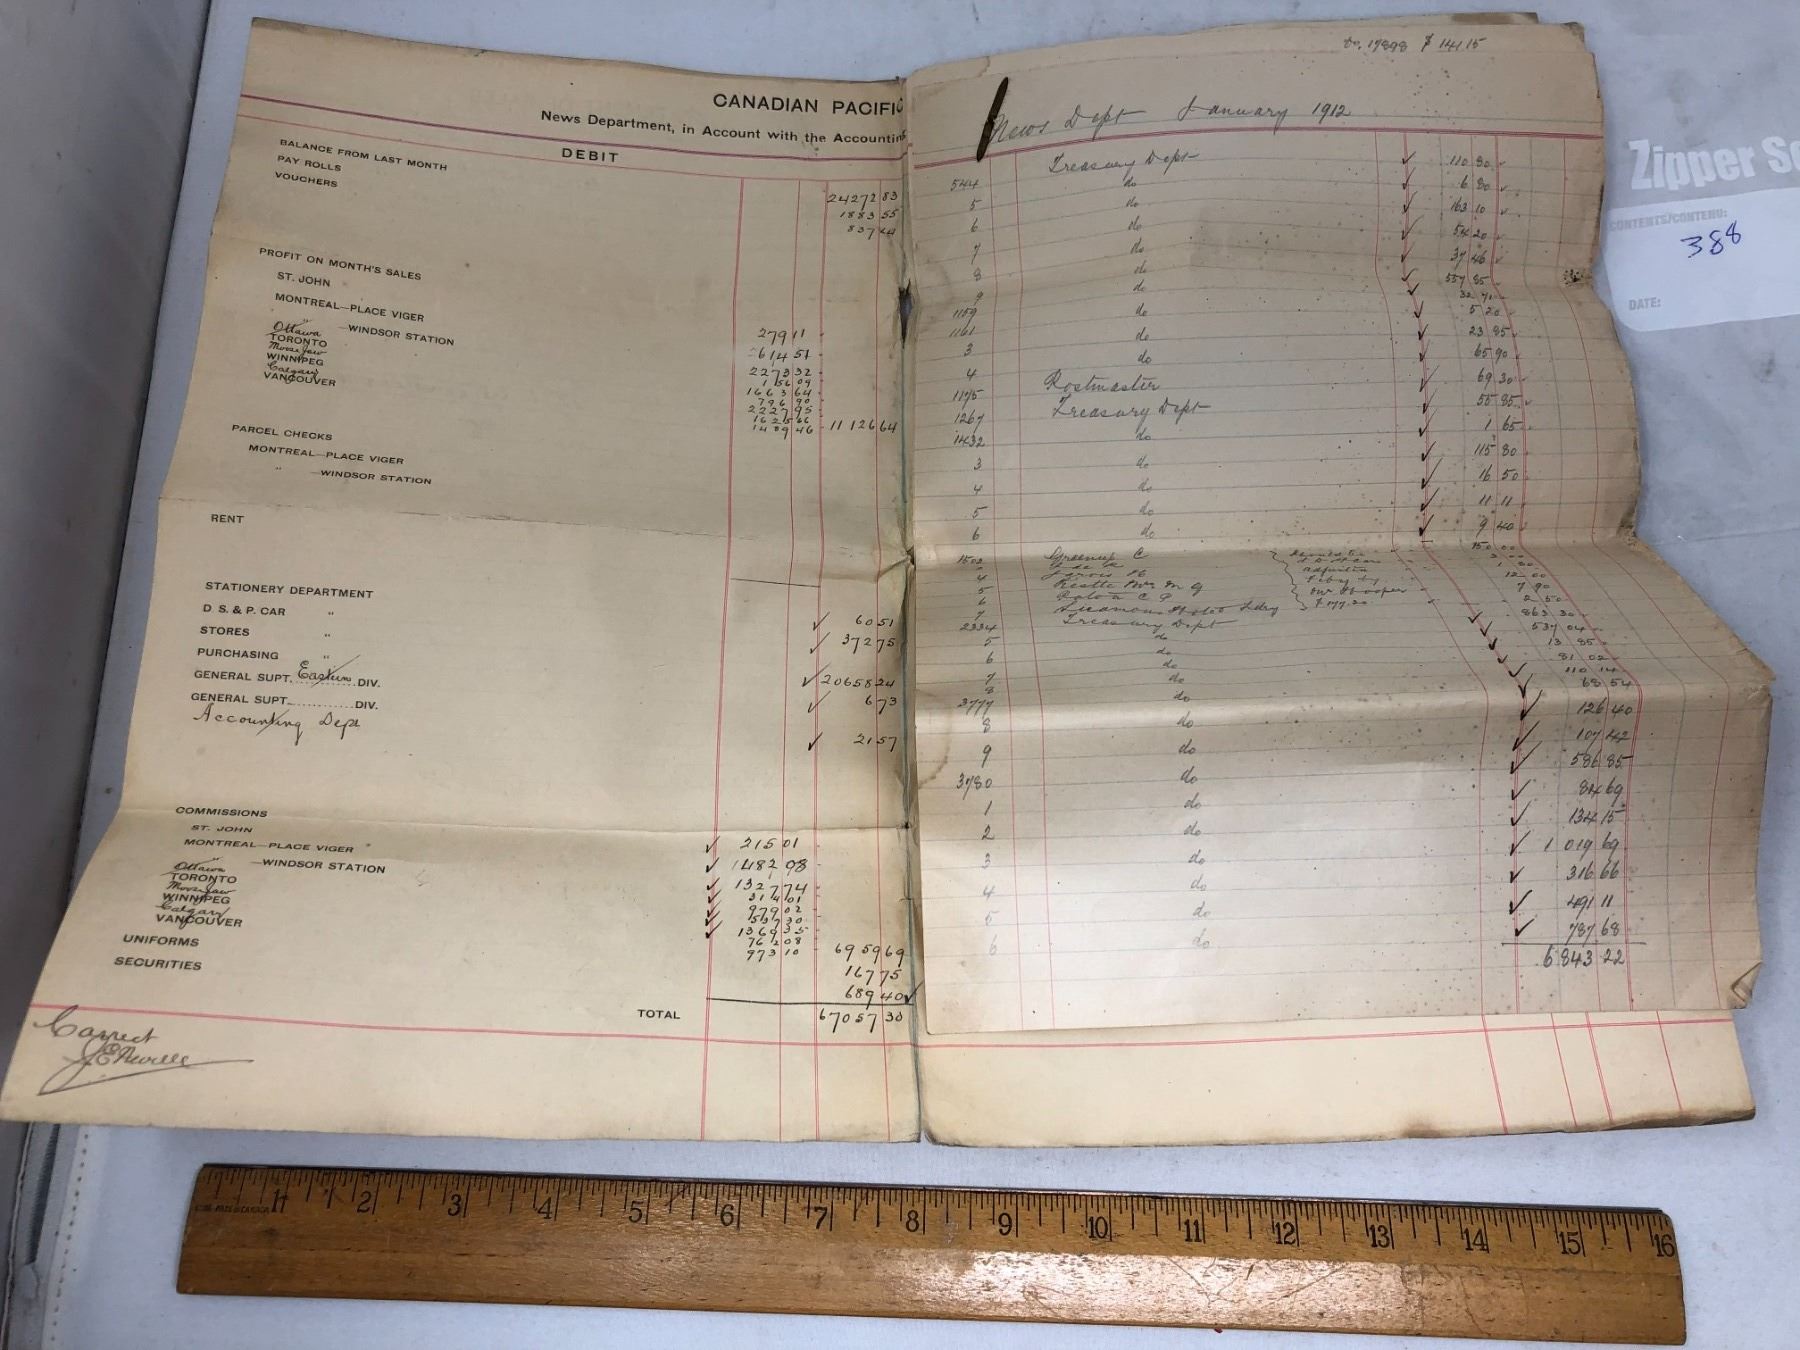 CANADIAN PACIFIC
News Department, in Account with the Accounting
DEBIT
BALANCE FROM LAST MONTH 24272 83
PAY ROLLS 1883 55
VOUCHERS 837 44
PROFIT ON MONTH'S SALES
ST. JOHN
MONTREAL—PLACE VIGER 279 11
" —WINDSOR STATION 2614 51
Ottawa
TORONTO
Moose Jaw
WINNIPEG
Calgary
VANCOUVER
2273 32
156 09
1663 64
796 90
2227 95
1489 46 11126 64
PARCEL CHECKS
MONTREAL—PLACE VIGER
" —WINDSOR STATION
RENT
STATIONERY DEPARTMENT 60 51
D. S. & P. CAR " 372 75
STORES "
PURCHASING " 20658 24
GENERAL SUPT. Eastern DIV. 6 73
GENERAL SUPT. DIV.
Accounting Dept 21 57
COMMISSIONS
ST. JOHN
MONTREAL—PLACE VIGER 215 01
" —WINDSOR STATION 1482 08
Ottawa
TORONTO
Moose Jaw
WINNIPEG
Calgary
VANCOUVER
1327 74
314 01
979 02
537 30
1369 35
762 08
973 10 6959 69
UNIFORMS 167 75
SECURITIES 689 40
TOTAL 67057 30
Correct
17898 $ 141 15
News Dept January 1912
544 Treasury Dept 110 80
5 do 6 80
6 do 163 10
7 do 54 20
8 do 37 46
9 do 557 85
1159 do 32 71
1161 do 5 20
3 do 23 85
4 do 65 90
1175 Postmaster 69 30
1267 Treasury Dept 55 85
1432 do 1 65
3 do 115 80
4 do 16 50
5 do 11 11
6 do 9 40
1502 Greenup C 150 00
4
5
6
7
2334 Treasury Dept 863 30
5 do 537 04
6 do 13 85
7 do 81 02
8 do 110 14
68 54
3777 do 126 40
8 do 107 42
9 do 586 85
3780 do 84 69
1 do 134 15
2 do 1 019 69
3 do 316 66
4 do 491 11
5 do 787 68
6 do
6 843 22
Zipper
CONTENTS/CONTENU:
388
DATE:
1 2 3 4 5 6 7 8 9 10 11 12 13 14 15 16